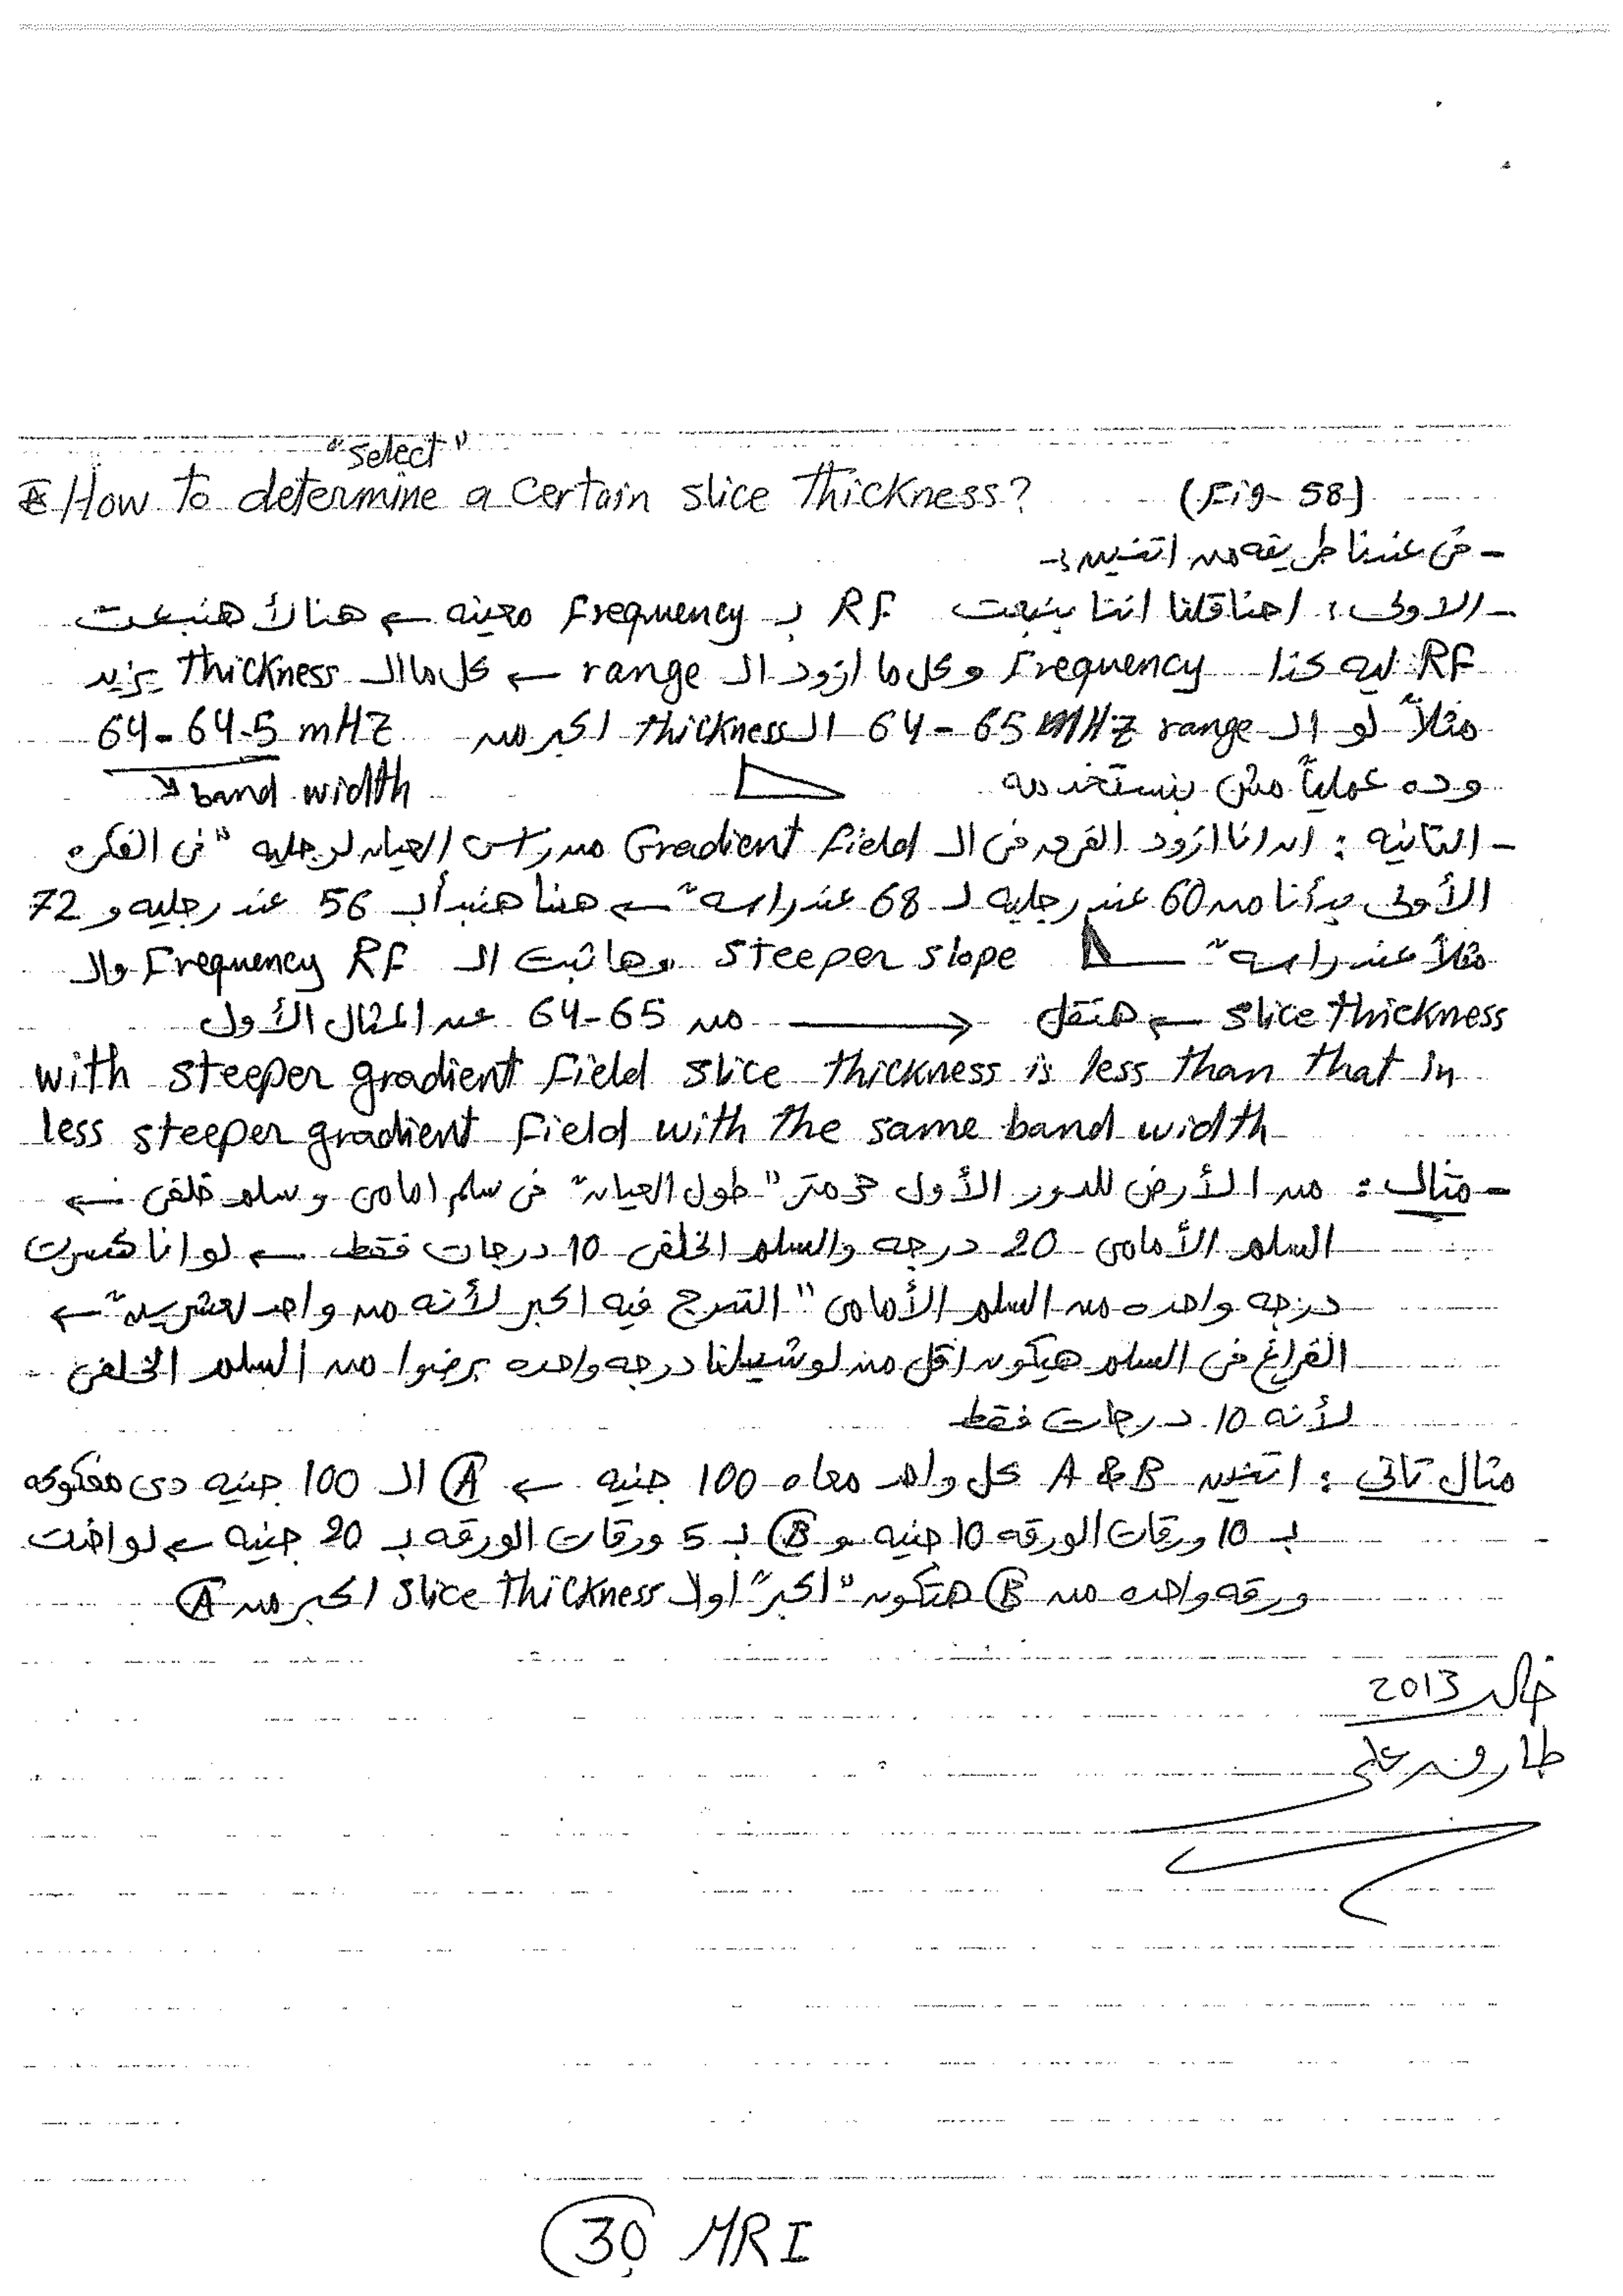 "select"
How To determine a certain slice Thickness? (Fig- 58)
- في عندنا طريقه من اتنين :-
- الاولى : احنا قلنا اننا بنبعت RF بـ Frequency معينه ← هناك هنبعت
RF ليه كذا Frequency وكل ما ازود الـ range ← كل ما الـ Thickness يزيد
مثلاً لو الـ range 64 - 65 MHz الـ Thickness اكبر من 64 - 64.5 mHz
وده عملياً مش بنستخدمه band width
- التانيه : ان انا ازود الفرق في الـ Gradient field من راس العيان لرجليه "في الفكره
الأولى بدأنا من 60 عند رجليه لـ 68 عند راسه" ← هنا هنبدأ بـ 56 عند رجليه و 72
مثلاً عند راسه" steeper slope وهاثبت الـ RF Frequency والـ
slice thickness ← هتقل → من 64-65 عن المثال الأول
with steeper gradient field slice thickness is less than that in
less steeper gradient field with the same band width
- مثال : من الأرض للدور الأول 3 متر "طول العيان" في سلم امامى وسلم خلفى ←
السلم الأمامى 20 درجه والسلم الخلفى 10 درجات فقط ← لو انا كسرت
درجه واحده من السلم الأمامى "التدرج فيه اكبر لأنه من واحد لعشرين" ←
الفراغ في السلم هيكون اقل من لو شيلنا درجه واحده برضوا من السلم الخلفى
لأنه 10 درجات فقط
مثال تانى : اتنين A & B كل واحد معاه 100 جنيه ← A الـ 100 جنيه دى مفكوكه
بـ 10 ورقات الورقه 10 جنيه و B بـ 5 ورقات الورقه بـ 20 جنيه ← لو اخدت
ورقه واحده من B هتكون "اكبر" اولا slice thickness اكبر من A
خالد 2013
طارق على
30 MRI